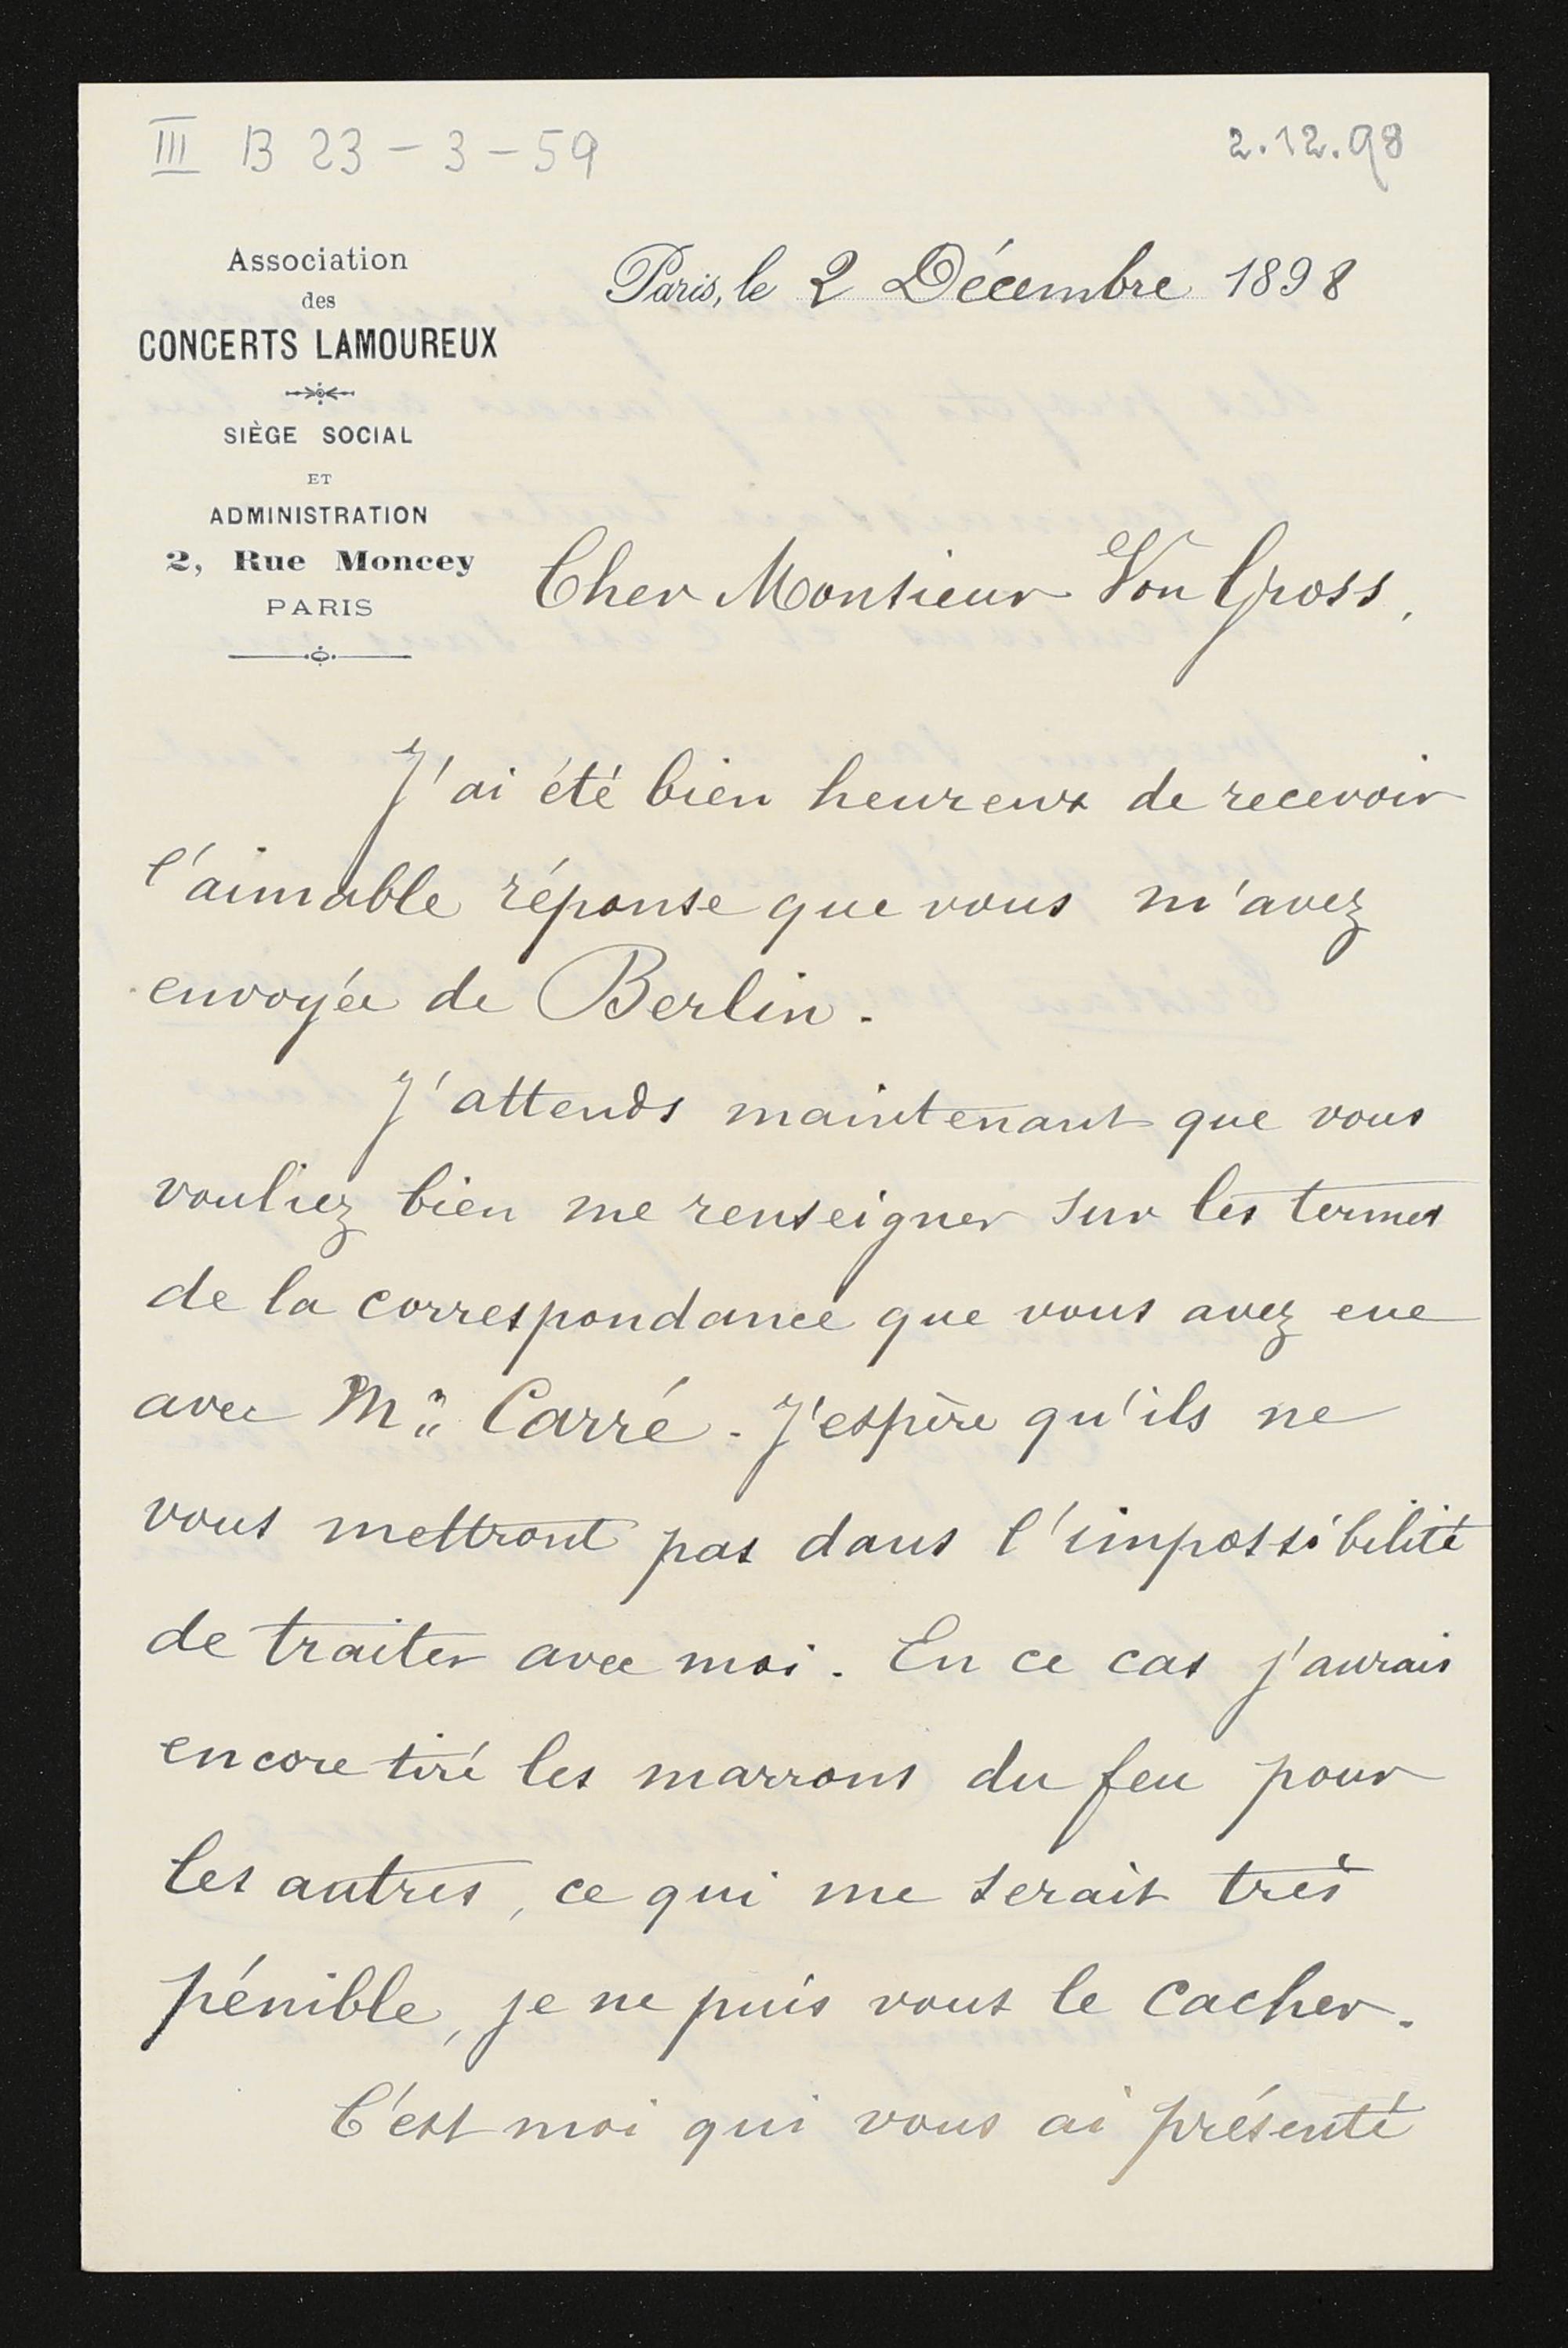 III B 23 - 3 - 59
2.12.98
Association
des
CONCERTS LAMOUREUX
SIÈGE SOCIAL
ET
ADMINISTRATION
2, Rue Moncey
PARIS
Paris, le 2 Décembre 1898
Cher Monsieur Von Gross,
J'ai été bien heureux de recevoir
l'aimable réponse que vous m'avez
envoyée de Berlin.
J'attends maintenant que vous
vouliez bien me renseigner sur les termes
de la correspondance que vous avez eue
avec Mr. Carré. J'espère qu'ils ne
vous mettront pas dans l'impossibilité
de traiter avec moi. En ce cas j'aurais
encore tiré les marrons du feu pour
les autres, ce qui me serait très
pénible, je ne puis vous le cacher.
C'est moi qui vous ai présenté